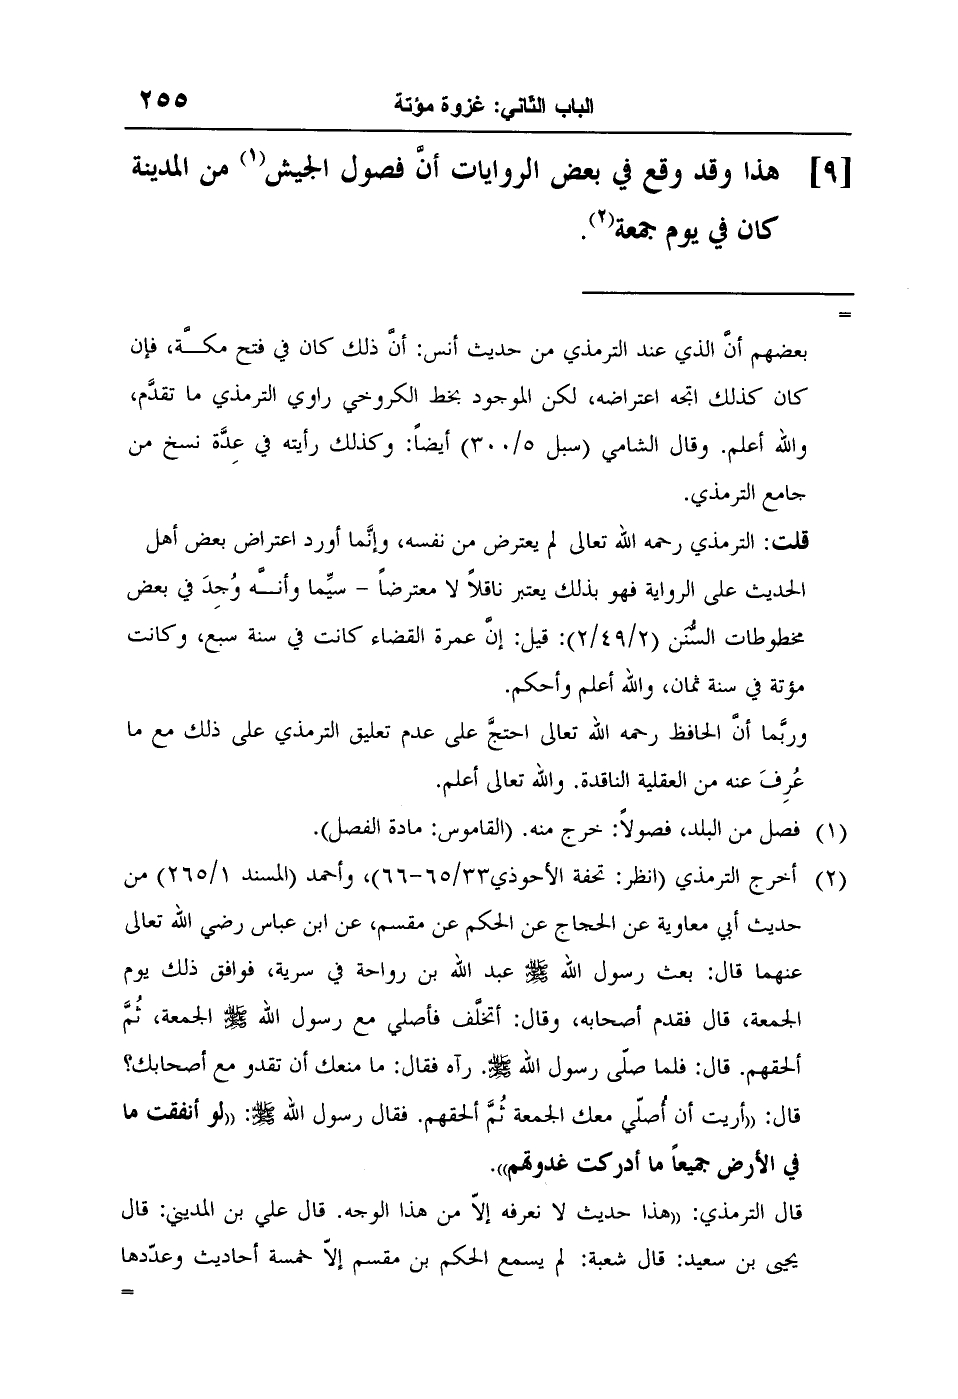 الباب الثاني: غزوة مؤتة ٢٥٥
[٩] هذا وقد وقع في بعض الروايات أنَّ فصول الجيش(١) من المدينة
كان في يوم جمعة(٢).
=
بعضهم أنَّ الذي عند الترمذي من حديث أنس: أنَّ ذلك كان في فتح مكـــة، فإن
كان كذلك اتجه اعتراضه، لكن الموجود بخط الكروخي راوي الترمذي ما تقدَّم،
والله أعلم. وقال الشامي (سبل ٣٠٠/٥) أيضاً: وكذلك رأيته في عِدَّة نسخ من
جامع الترمذي.
قلت: الترمذي رحمه الله تعالى لم يعترض من نفسه، وإنَّما أورد اعتراض بعض أهل
الحديث على الرواية فهو بذلك يعتبر ناقلاً لا معترضاً - سيِّما وأنــَّه وُجِدَ في بعض
مخطوطات السُّنَن (٢/٤٩/٢): قيل: إنَّ عمرة القضاء كانت في سنة سبع، وكانت
مؤتة في سنة ثمان، والله أعلم وأحكم.
وربَّما أنَّ الحافظ رحمه الله تعالى احتجَّ على عدم تعليق الترمذي على ذلك مع ما
عُرِفَ عنه من العقلية الناقدة. والله تعالى أعلم.
(١) فصل من البلد، فصولاً: خرج منه. (القاموس: مادة الفصل).
(٢) أخرج الترمذي (انظر: تحفة الأحوذي٦٥/٣٣-٦٦)، وأحمد (المسند ٢٦٥/١) من
حديث أبي معاوية عن الحجاج عن الحكم عن مقسم، عن ابن عباس رضي الله تعالى
عنهما قال: بعث رسول الله ﷺ عبد الله بن رواحة في سرية، فوافق ذلك يوم
الجمعة، قال فقدم أصحابه، وقال: أتخلَّف فأصلي مع رسول الله ﷺ الجمعة، ثُمَّ
ألحقهم. قال: فلما صلّى رسول الله ﷺ. رآه فقال: ما منعك أن تقدو مع أصحابك؟
قال: ((أريت أن أُصلّي معك الجمعة ثُمَّ ألحقهم. فقال رسول الله ﷺ: ((لو أنفقت ما
في الأرض جميعاً ما أدركت غدوتهم)).
قال الترمذي: ((هذا حديث لا نعرفه إلاّ من هذا الوجه. قال علي بن المديني: قال
يحيى بن سعيد: قال شعبة: لم يسمع الحكم بن مقسم إلاّ خمسة أحاديث وعدّدها
=